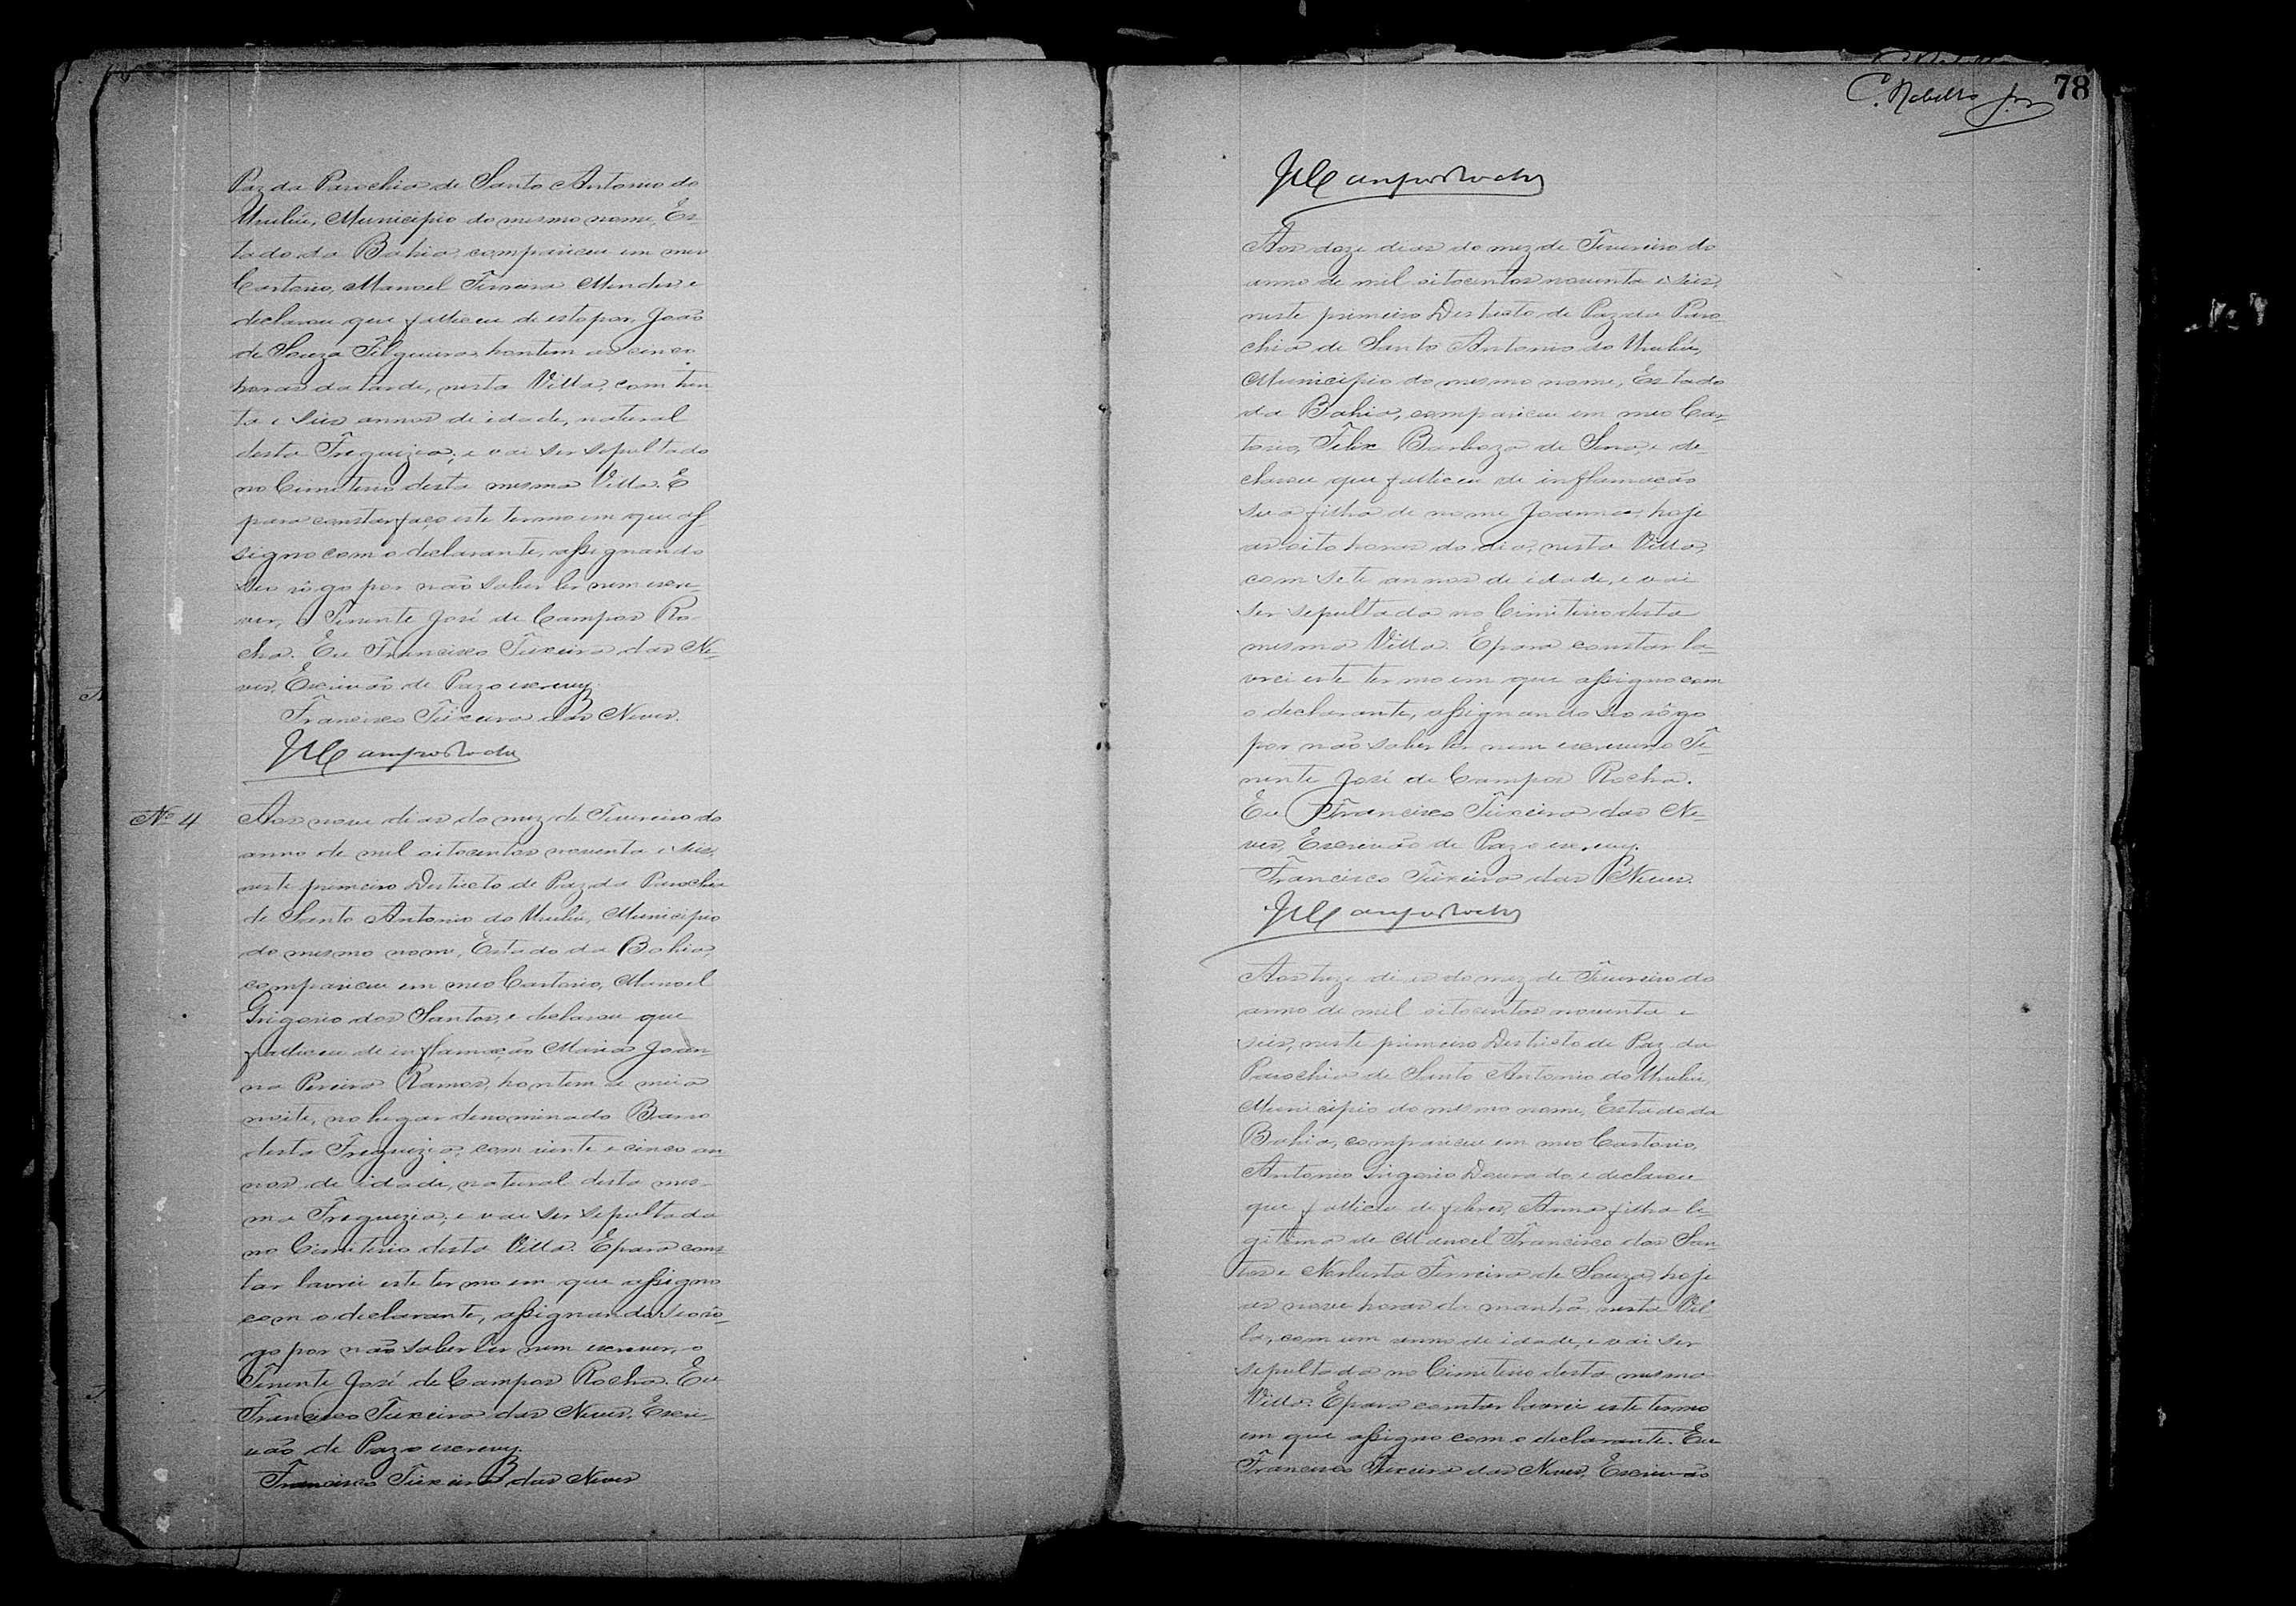 Paz da Parochia de Santo Antonio do
Urubú, Municipio do mesmo nome, Es-
tado da Bahia, compareceu em meo
Cartorio, Manoel Ferreira Mendes, e
declarou que falleceu de estopor, João
de Souza Filgueiras, hontem as cinco
horas da tarde, nesta Villa, com trin
ta e seis annos de idade, natural
desta Freguizia, e vai ser sepultado
no Cimiterio desta mesma Villa. E
para constar faço este termo em que as
signo com o declarante, assignando
seo rôgo por não saber ler nem escre-
ver, o Tenente José de Campos Ro-
cha. Eu Francisco Teixeira das Ne-
ves, Escrivão de Paz o escrevy.
Francisco Teixeira das Neves.
JCamposRocha
Nº 4
Aos nove dias do mez de Fevereiro do
anno de mil oitocentos noventa e seis,
neste primeiro Destricto de Paz da Parochia
de Santo Antonio do Urubú, Municipio
do mesmo nome, Estado da Bahia,
compareceu em meo Cartorio, Manoel
Grigorio dos Santos, e declarou que
falleceu de inflamação Maria Joan-
na Pereira Ramos, hontem a meia
noite, no lugar denominado Barro
desta Freguizia, com vinte e cinco an-
nos de idade, natural desta mes-
ma Freguizia, e vai ser sepultada
no Cimiterio desta Villa. E para cons
tar lavrei este termo em que assigno
com o declarante, assignando seo rô-
go por não saber ler nem escrever, o
Tenente José de Campos Rocha. Eu
Francisco Teixeira das Neves, Escri-
vão de Paz o escrevy.
Francisco Teixeira das Neves
78
C. Rabello Jor
JCamposRocha
Aos doze dias do mez de Fevereiro do
anno de mil oitocentos noventa e seis,
neste primeiro Destricto de Paz da Paro-
chia de Santo Antonio do Urubú,
Municipio do mesmo nome, Estado
da Bahia, compareceu em meo Car-
torio, Felix Barboza de Sena, e de-
clarou que falleceu de inflamação
sua filha de nome Joanna, hoje
as oito horas do dia, nesta Villa,
com sete annos de idade, e vai
ser sepultada no Cimiterio desta
mesma Villa. E para constar la-
vrei este termo em que assigno com
o declarante, assignando seo rôgo
por não saber ler nem escrever o Te-
nente José de Campos Rocha.
Eu Francisco Teixeira das Ne-
ves, Escrivão de Paz o escrevy.
Francisco Teixeira das Neves.
JCamposRocha
Aos treze dias do mez de Fevereiro do
anno de mil oitocentos noventa e
seis, neste primeiro Destricto de Paz da
Parochia de Santo Antonio do Urubú,
Municipio do mesmo nome, Estado da
Bahia, compareceu em meo Cartorio,
Antonio Grigorio Dourado, e declarou
que falleceu de febres, Anna filha le-
gitima de Manoel Francisco dos San-
tos e Norberta Ferreira de Souza, hoje
as nove horas da manhã, nesta Vil-
la, com um anno de idade, e vai ser
sepultada no Cimiterio desta mesma
Villa. E para constar lavrei este termo
em que assigno com o declarante. Eu
Francisco Teixeira das Neves, Escrivão